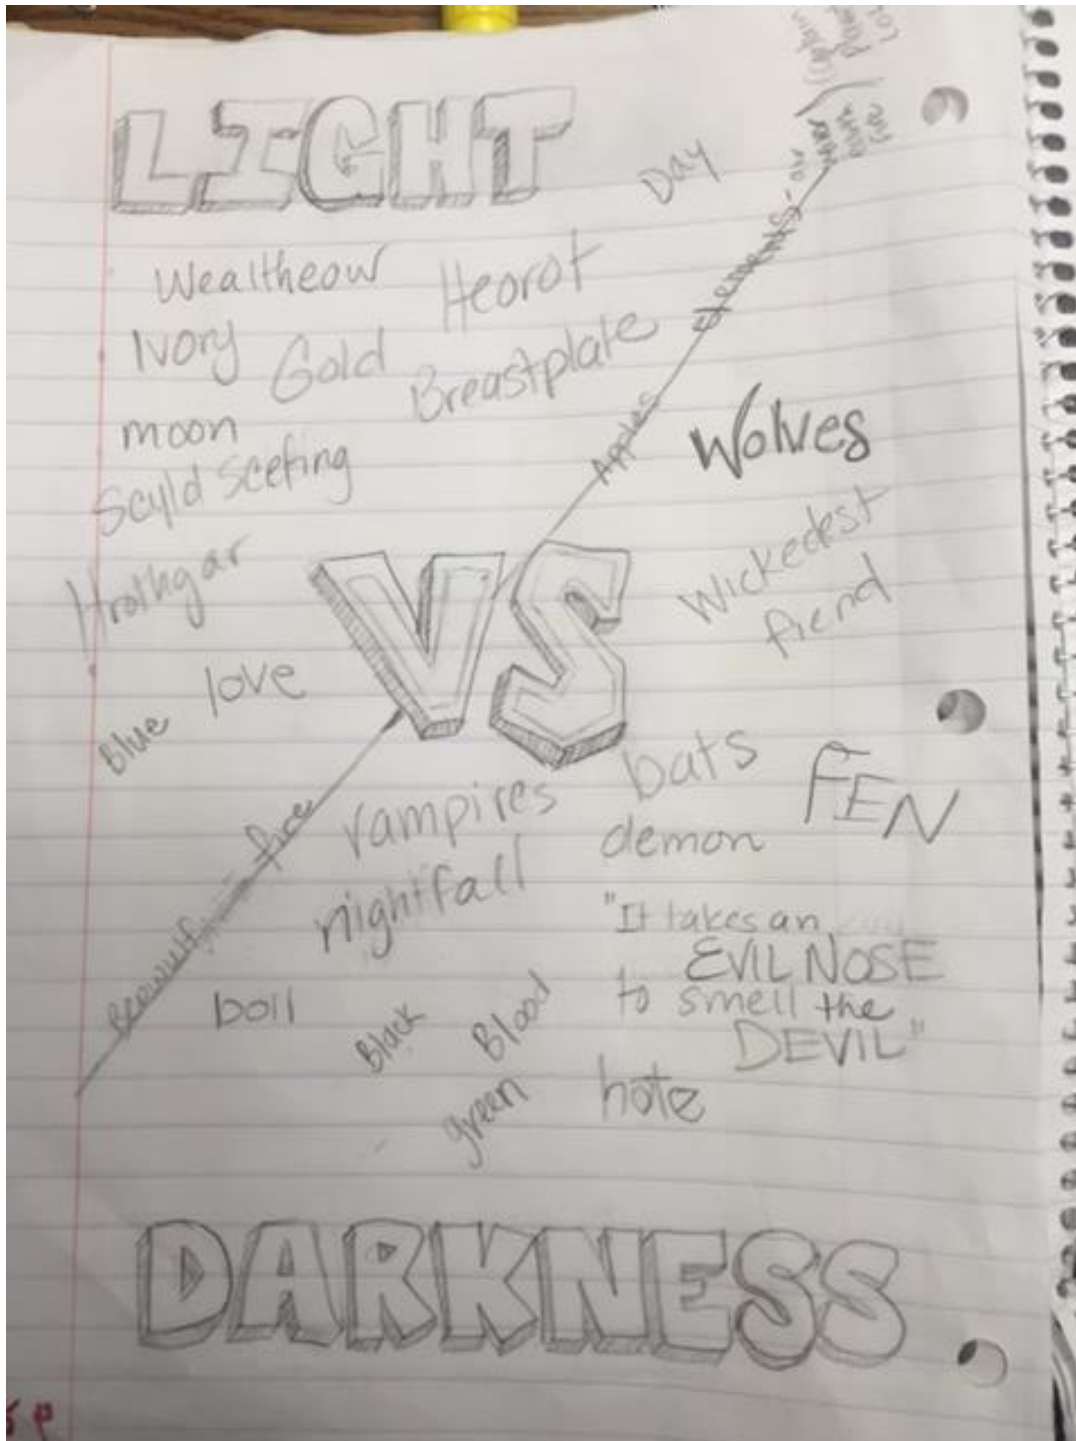 LIGHT
Day
Wealtheow
Heorot
Ivory
Gold
Breastplate
moon
Scyld Scefing
Hrothgar
love
Blue
VS
Apples
elements - air
water
fire
Beowulf
Wolves
Wickedest
fiend
bats
FEN
vampires
demon
nightfall
"It takes an
EVIL NOSE
to smell the
DEVIL"
boil
Black
Blood
green
hate
DARKNESS